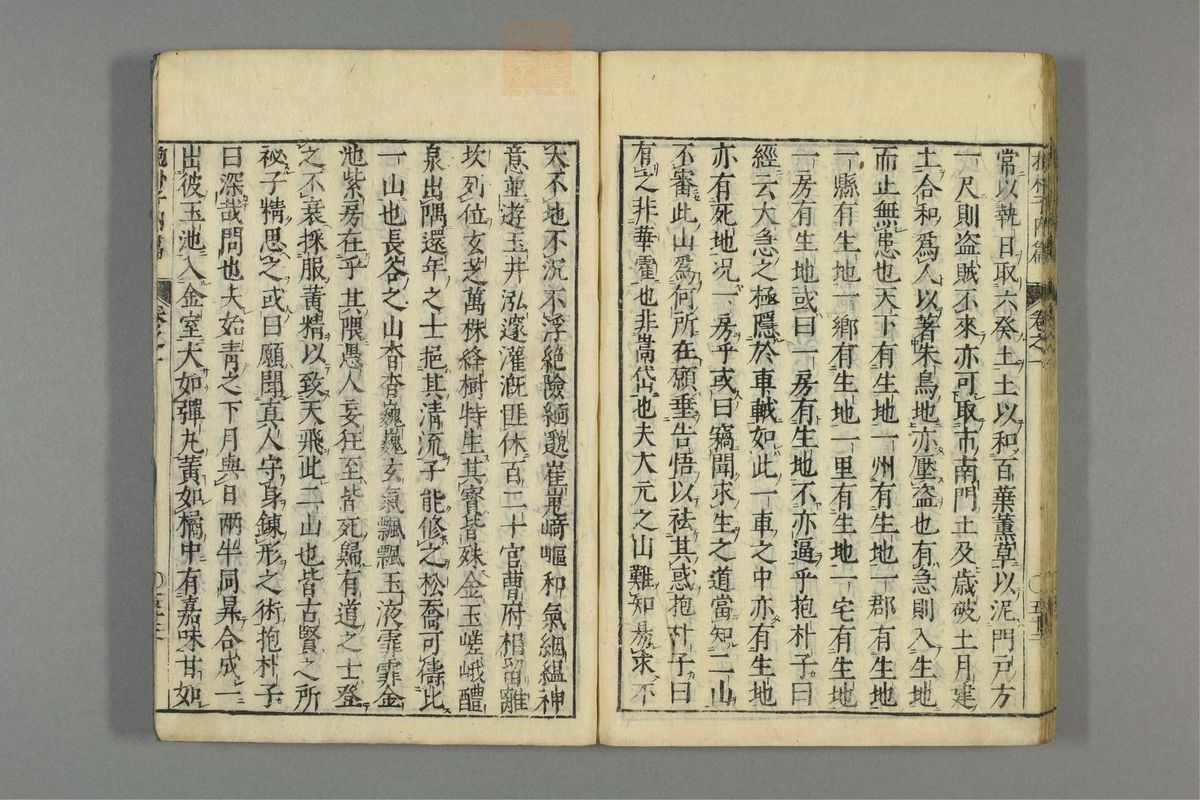 抱朴子內篇　卷之一　〇五十三
常以執日取六癸上土以和百葉薰草以泥門戶方
一尺則盜賊不來亦可取市南門土及歲破土月建
土合和爲人以著朱鳥地亦壓盜也有急則入生地
而止無患也天下有生地一州有生地一郡有生地
一縣有生地一鄉有生地一里有生地一宅有生地
一房有生地或曰一房有生地不亦逼乎抱朴子曰
經云大急之極隱於車軾如此一車之中亦有生地
亦有死地况一房乎或曰竊聞求生之道當知二山
不審此山爲何所在願垂告悟以袪其惑抱朴子曰
有之非華霍也非嵩岱也夫大元之山難知易求不
天不地不沉不浮絶險緬邈崔嵬崎嶇和氣絪縕神
意並遊玉井泓邃灌漑匪休百二十官曹府相留離
坎列位玄芝萬株絳樹特生其寳皆殊金玉嵯峨醴
泉出隅還年之士挹其清流子能修之松喬可儔此
一山也長谷之山杳杳巍巍玄氣飄飄玉液霏霏金
池紫房在乎其隈愚人妄往至皆死歸有道之士登
之不衰採服黃精以致天飛此二山也皆古賢之所
祕子精思之或曰願聞眞人守身鍊形之術抱朴子
曰深哉問也夫始青之下月與日兩半同昇合成一
出彼玉池入金室大如彈丸黃如橘中有嘉味甘如